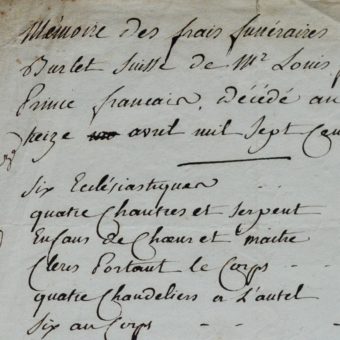 Mémoire des frais funéraires
Burlet Suisse de Mr Louis
Prince français, décédé au
Seize avril mil Sept Cen
Six Ecclésiastiques
quatre Chantres et Serpent
Enfans de Chœur et maitre
Clercs Portant le Corps
quatre Chandeliers a L'autel
Six au Corps